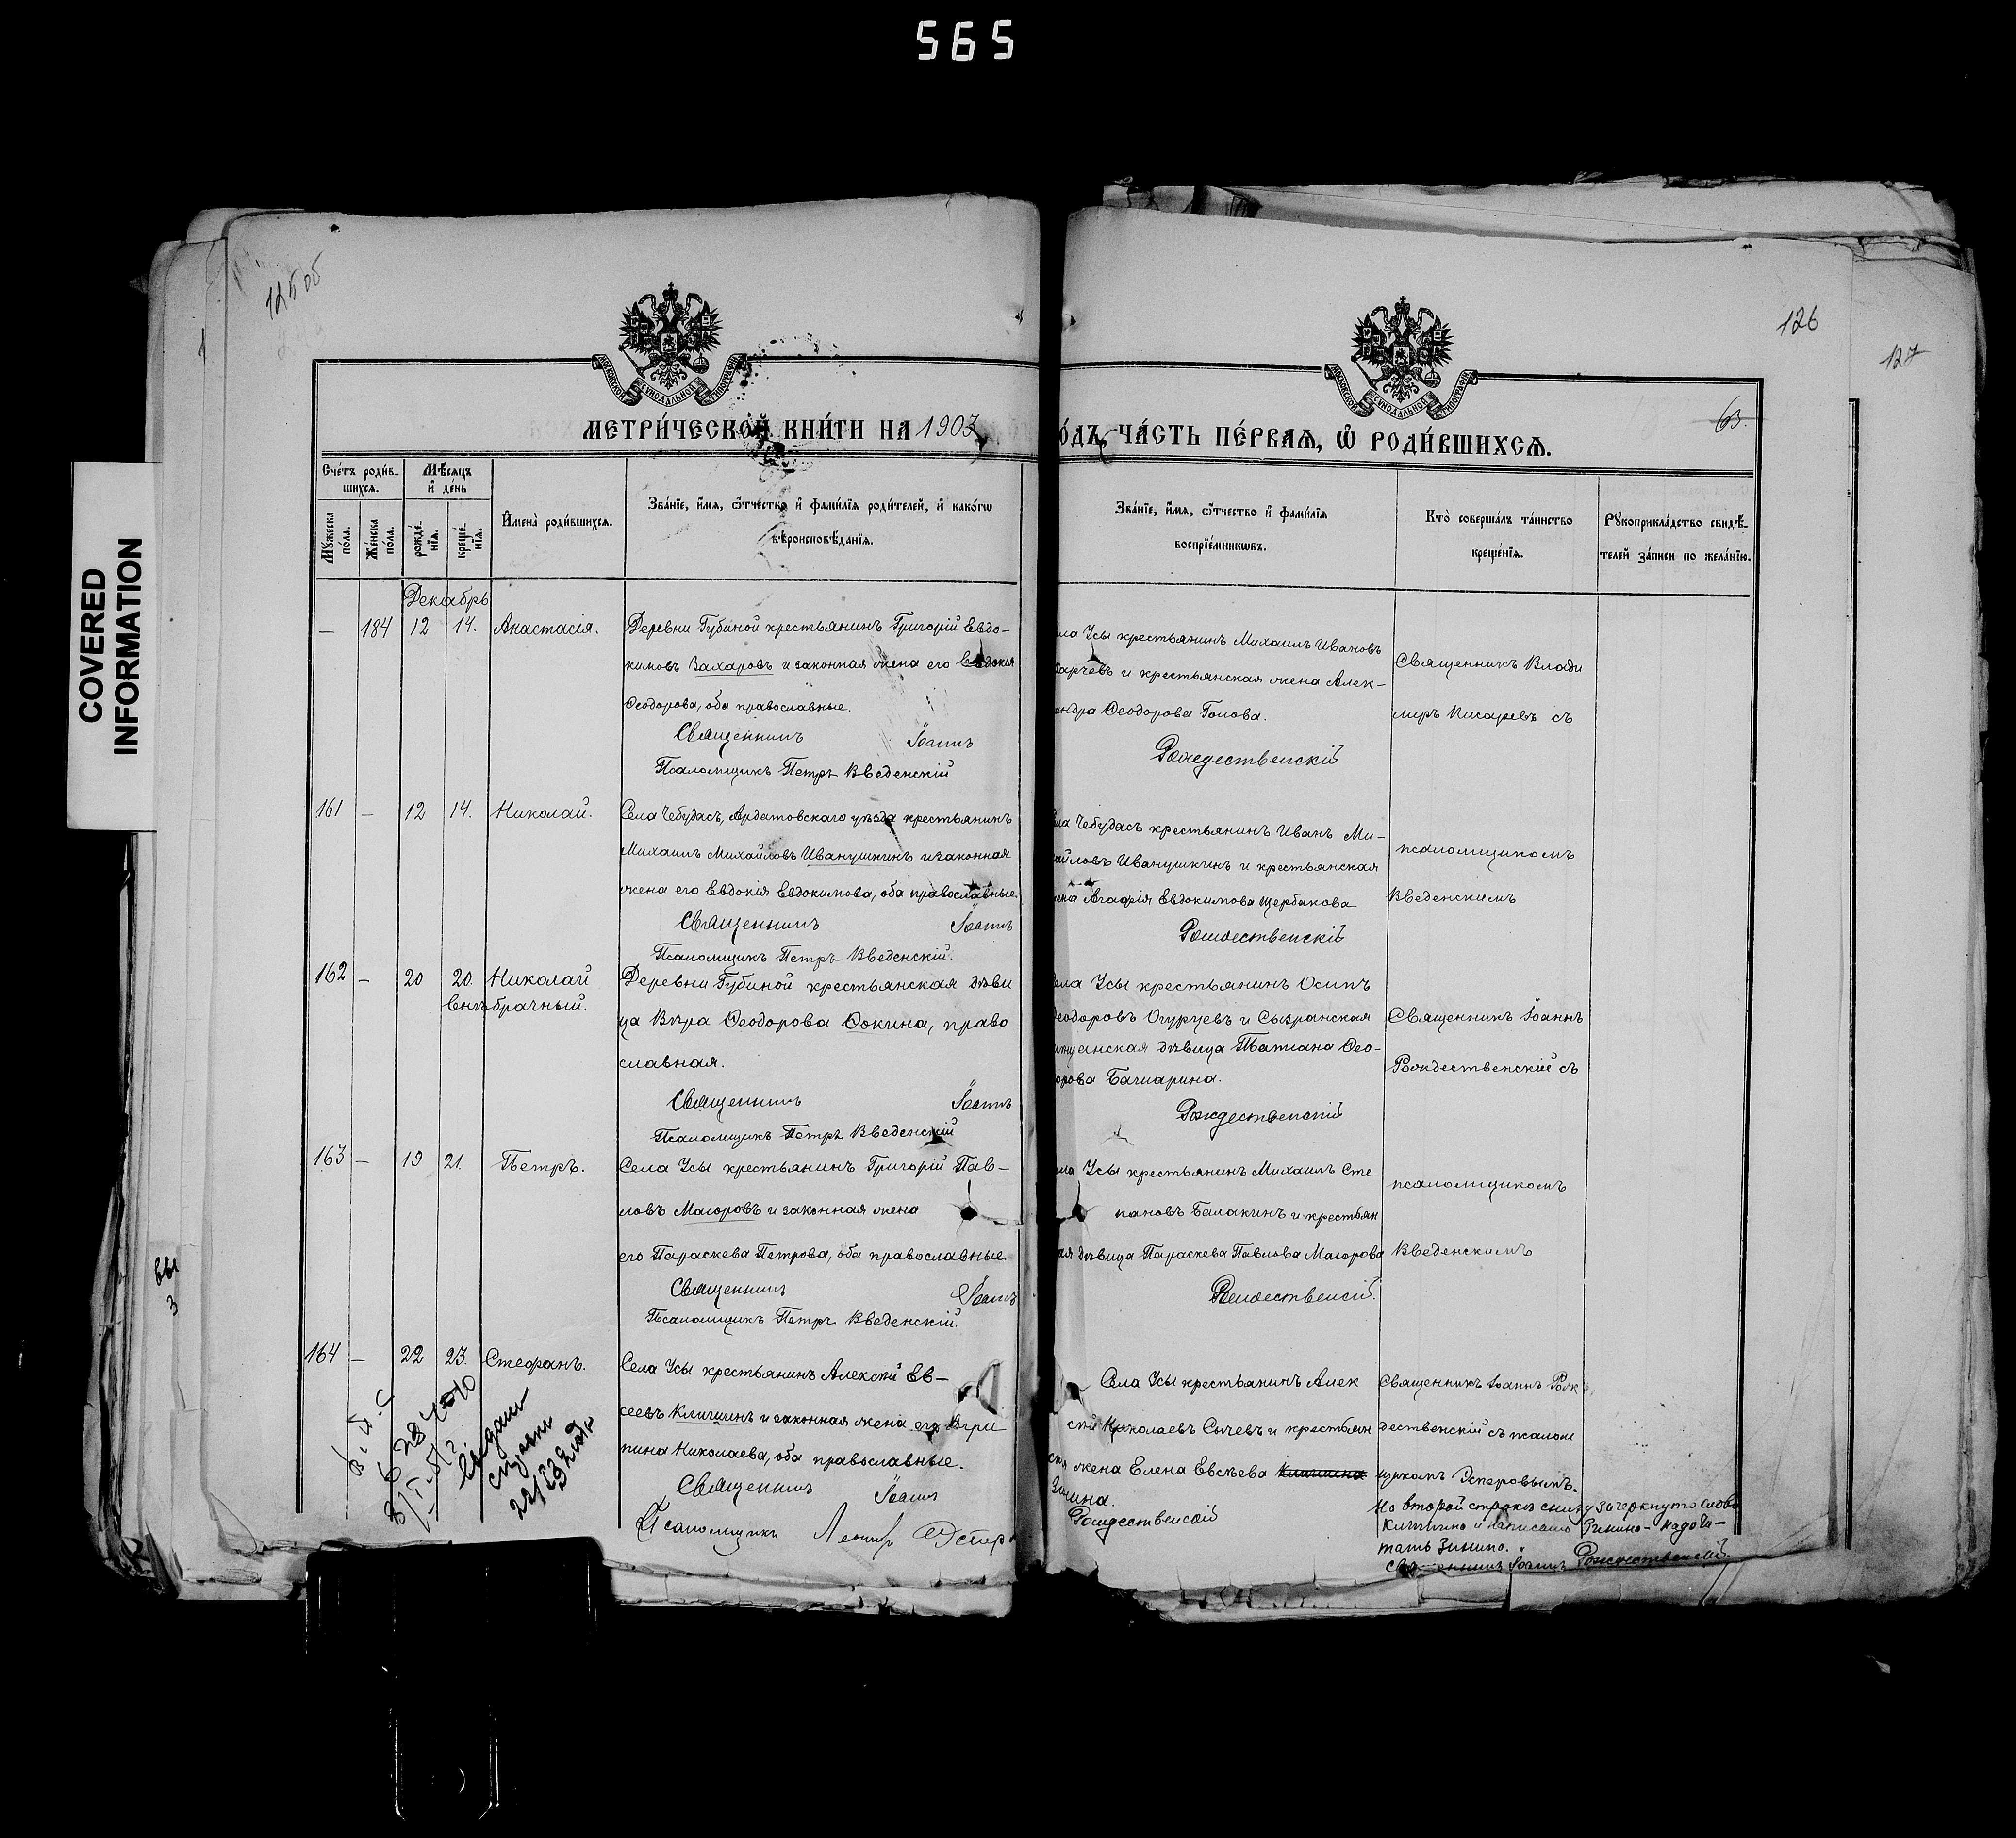 565
125 об
126
127
63.
МОСКОВСКОЙ СѴНОДАЛЬНОЙ ТИПОГРАФІИ
МОСКОВСКОЙ СѴНОДАЛЬНОЙ ТИПОГРАФІИ
МЕТРИ́ЧЕСКОЙ КНИ́ГИ НА 1903
О́ДЪ, ЧА́СТЬ ПЕ́РВАѦ, Ѽ РОДИ́ВШИХСѦ.
COVERED
INFORMATION
Сче́тъ роди́в-
шихся.
Мѣ́сяцъ
и́ де́нь
Му́жеска
по́ла.
Же́нска
по́ла.
рожде́-
нїя.
креще́-
нїя.
И҆мена̀ роди́вшихся.
Зва́нїе, и҆́мя, ѻ҆́тчество и҆ фами́лїя роди́телей, и҆ како́гѡ
вѣроисповѣ́данїя.
Зва́нїе, и҆́мя, ѻ҆́тчество и҆ фами́лїя
воспрїе́мникѡвъ.
Кто̀ соверша́лъ та́инство
креще́нїя.
Рꙋкоприкла́дство свидѣ́-
телей за́писи по жела́нїю.
Декабрь
— 184 12 14. Анастасія. Деревни Губиной крестьянинъ Григорій Евдо-
кимовъ Захаровъ и законная жена его Евдокія
Ѳеодорова, оба православные.
Священникъ Іоаннъ
Псаломщикъ Петръ Введенскій
ела Усы крестьянинъ Михаилъ Ивановъ
арчевъ и крестьянская жена Алек-
андра Ѳеодорова Попова.
Рождественскій
Священникъ Влади
миръ Писаревъ съ
161 — 12 14. Николай. Села Чебудасъ, Ардатовскаго уѣзда крестьянинъ
Михаилъ Михайловъ Иванушкинъ и законная
жена его Евдокія Евдокимова, оба православные.
Священникъ Іоаннъ
Псаломщикъ Петръ Введенскій.
ела Чебудасъ крестьянинъ Иванъ Ми-
айловъ Иванушкинъ и крестьянская
ена Агафія Евдокимова Щербакова
Рождественскій
псаломщикомъ
Введенскимъ
162 — 20 20. Николай
внѣбрачный.
Деревни Губиной крестьянская дѣви
ца Вѣра Ѳеодорова Ѳокина, право
славная.
Священникъ Іоаннъ
Псаломщикъ Петръ Введенскій
ела Усы крестьянинъ Осипъ
еодоровъ Огурцевъ и Сызранская
ѣщанская дѣвица Татіана Ѳео-
орова
Рождественскій
Священникъ Іоаннъ
Рождественскій съ
163 — 19 21. Петръ. Села Усы крестьянинъ Григорій Пав-
ловъ Маіоровъ и законная жена
его Параскева Петрова, оба православные.
Священникъ Іоаннъ
Псаломщикъ Петръ Введенскій.
ела Усы крестьянинъ Михаилъ Сте
пановъ Балакинъ и крестьян
ая дѣвица Параскева Павлова Маіорова
Рождественскій.
псаломщикомъ
Введенскимъ
164 — 22 23. Стефанъ. Села Усы крестьянинъ Алексѣй Ев-
сеевъ Климинъ и законная жена его Агри
пина Николаева, оба православные.
Священникъ Іоаннъ
Псаломщикъ
Села Усы крестьянинъ Алек
сѣй Николаевъ Сычевъ и крестьян
ская жена Елена Евсѣева Климина
Зимина.
Рождественскій
Священникъ Іоаннъ Рож
дественскій съ псалом
щикомъ Эсперовымъ.
На второй строкѣ снизу зачеркнуто слово
Климина и написано надо чи-
тать Зимина.
Священникъ Іоаннъ Рождественскій.